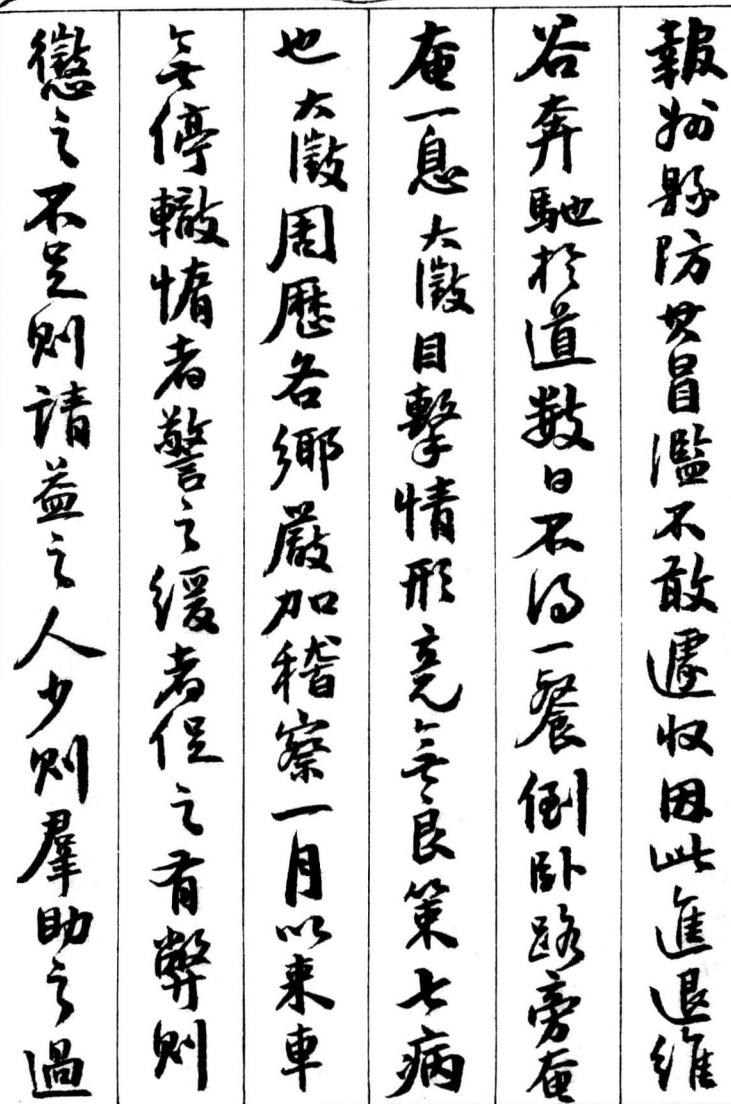 報州縣防其冒濫不敢遽收因此進退維
谷奔馳於道數日不得一餐倒臥路旁奄
奄一息大徵目擊情形竟無良策七病
也大徵周歷各鄉嚴加稽察一月以來車
無停轍惰者警之緩者促之有弊則
懲之不足則請益之人少則羣助之過